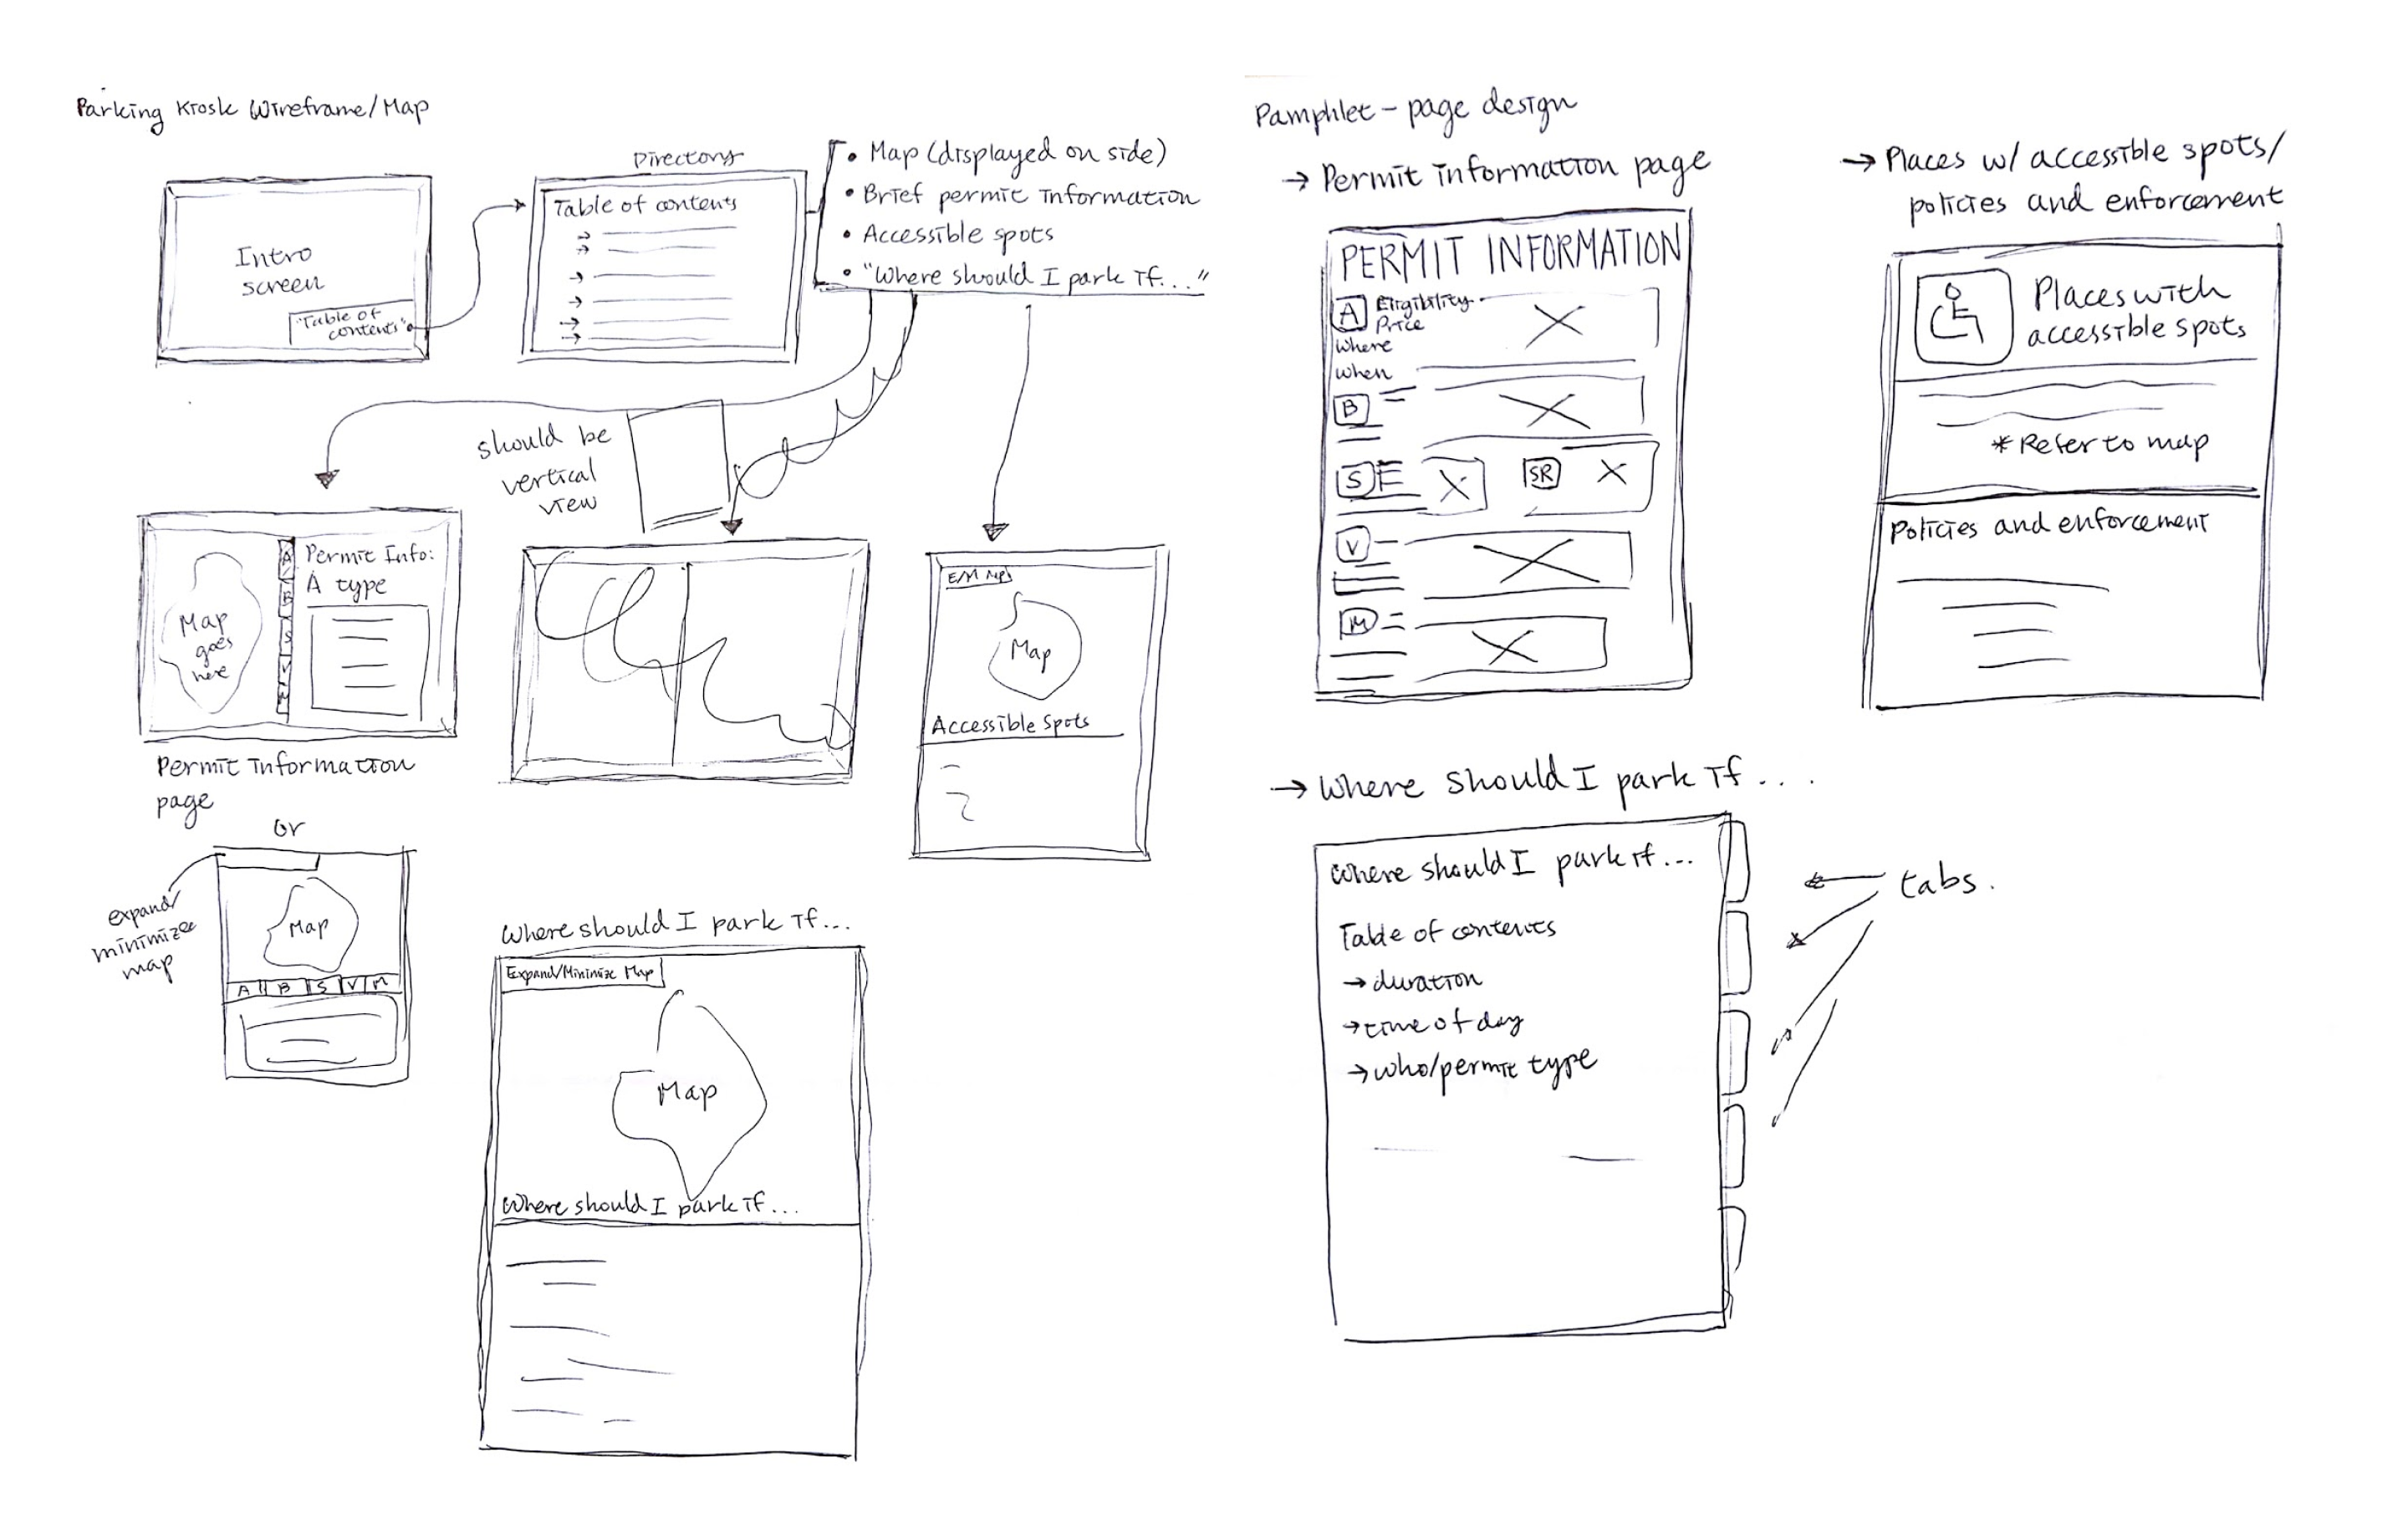 Parking Kiosk Wireframe/Map
Intro
screen
"Table of
contents"
Directory
Table of contents
• Map (displayed on side)
• Brief permit information
• Accessible spots
• "Where should I park if..."
should be
vertical
view
Map
goes
here
A
B
S
V
M
Permit Info:
A type
Permit information
page
or
expand/
minimize
map
Map
A B S V M
E/M Map
Map
Accessible Spots
Where should I park if...
Expand/Minimize Map
Map
Where should I park if...
Pamphlet - page design
→ Permit information page
PERMIT INFORMATION
A Eligibility
Price
Where
When
B
S
SR
V
M
→ Places w/ accessible spots/
policies and enforcement
Places with
accessible spots
* Refer to map
Policies and enforcement
→ Where should I park if....
Where should I park if...
Table of contents
→ duration
→ time of day
→ who/permit type
tabs.